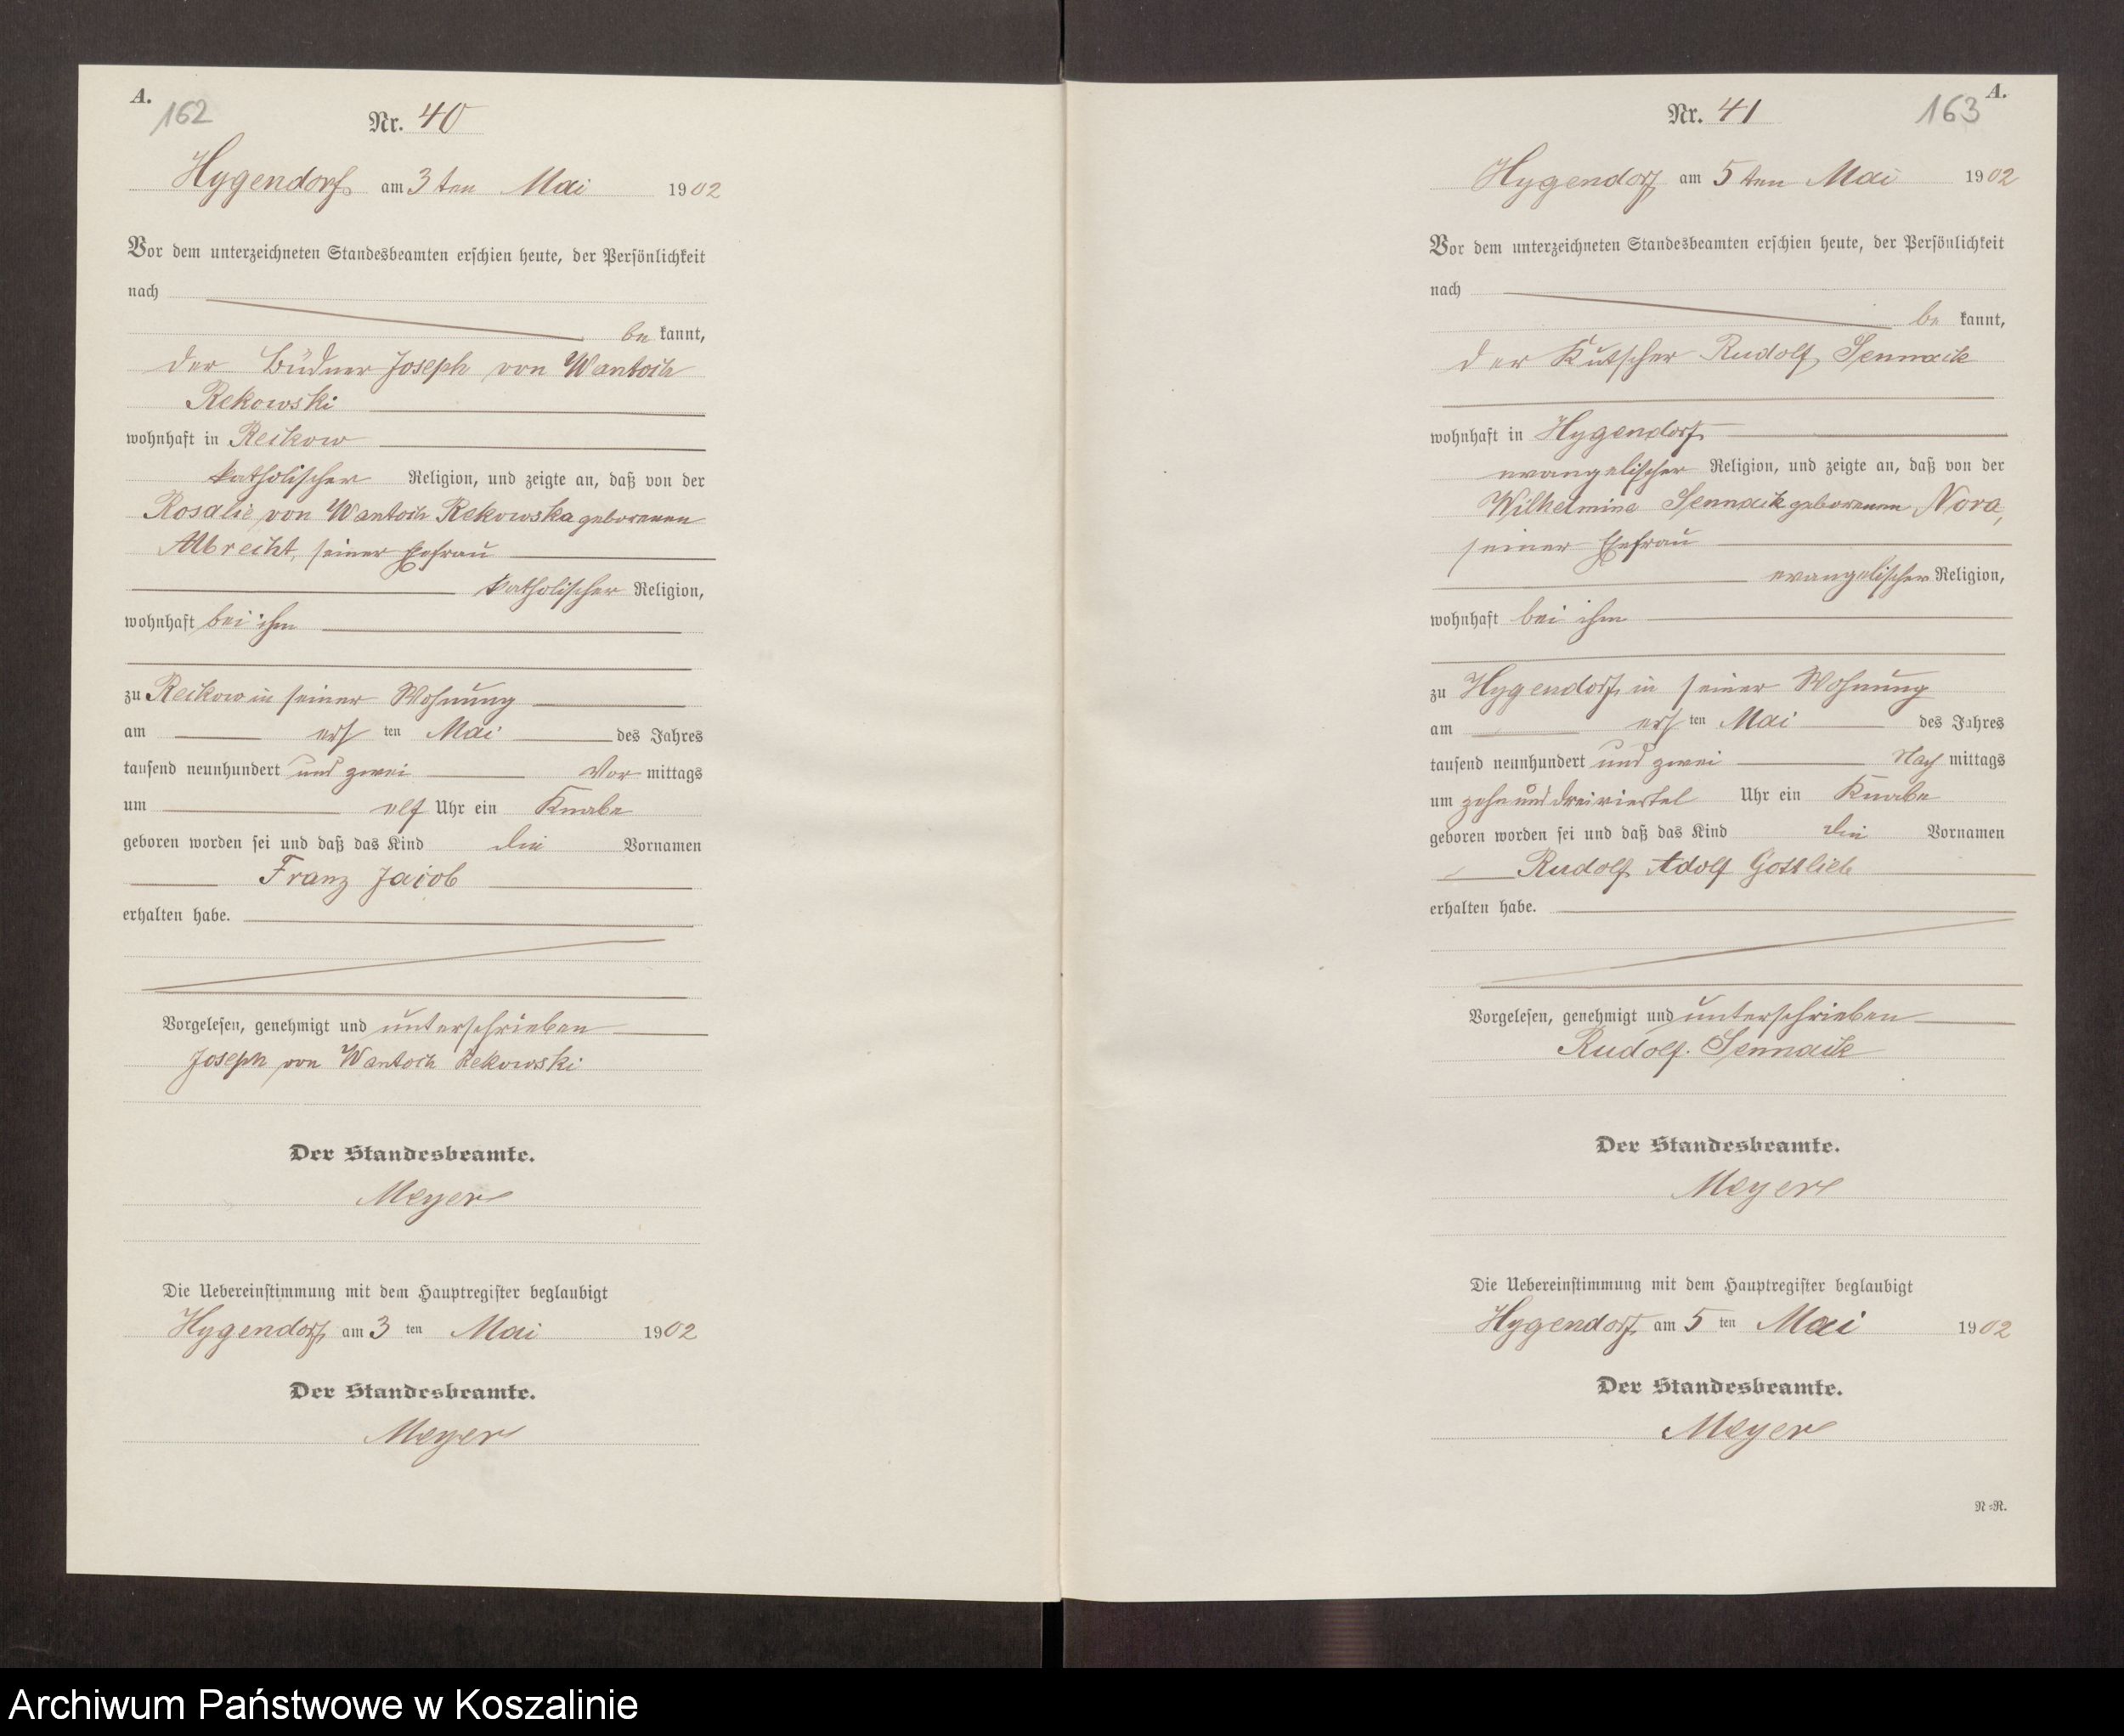 A.
162
Nr. 40
Hygendorf am 3 ten Mai 1902
Vor dem unterzeichneten Standesbeamten erschien heute, der Persönlichkeit
nach
be kannt,
der Büdner Joseph von Wantoch
Rekowski
wohnhaft in Reckow
katholischer Religion, und zeigte an, daß von der
Rosalie von Wantoch Rekowska geborenen
Albrecht, seiner Ehefrau
katholischer Religion,
wohnhaft bei ihm
zu Reckow in seiner Wohnung
am ersten Mai des Jahres
tausend neunhundert und zwei Vor mittags
um elf Uhr ein Knabe
geboren worden sei und daß das Kind die Vornamen
Franz Jacob
erhalten habe.
Vorgelesen, genehmigt und unterschrieben
Joseph von Wantoch Rekowski
Der Standesbeamte.
Meyer
Die Uebereinstimmung mit dem Hauptregister beglaubigt
Hygendorf am 3 ten Mai 1902
Der Standesbeamte.
Meyer
A.
163
Nr. 41
Hygendorf am 5 ten Mai 1902
Vor dem unterzeichneten Standesbeamten erschien heute, der Persönlichkeit
nach
be kannt,
der Kutscher Rudolf Sennack
wohnhaft in Hygendorf
evangelischer Religion, und zeigte an, daß von der
Wilhelmine Sennack geborenen Nora,
seiner Ehefrau
evangelischer Religion,
wohnhaft bei ihm
zu Hygendorf in seiner Wohnung
am ersten Mai des Jahres
tausend neunhundert und zwei Nach mittags
um zehn und dreiviertel Uhr ein Knabe
geboren worden sei und daß das Kind die Vornamen
Rudolf Adolf Gottlieb
erhalten habe.
Vorgelesen, genehmigt und unterschrieben
Rudolf Sennack
Der Standesbeamte.
Meyer
Die Uebereinstimmung mit dem Hauptregister beglaubigt
Hygendorf am 5 ten Mai 1902
Der Standesbeamte.
Meyer
N=R.
Archiwum Państwowe w Koszalinie